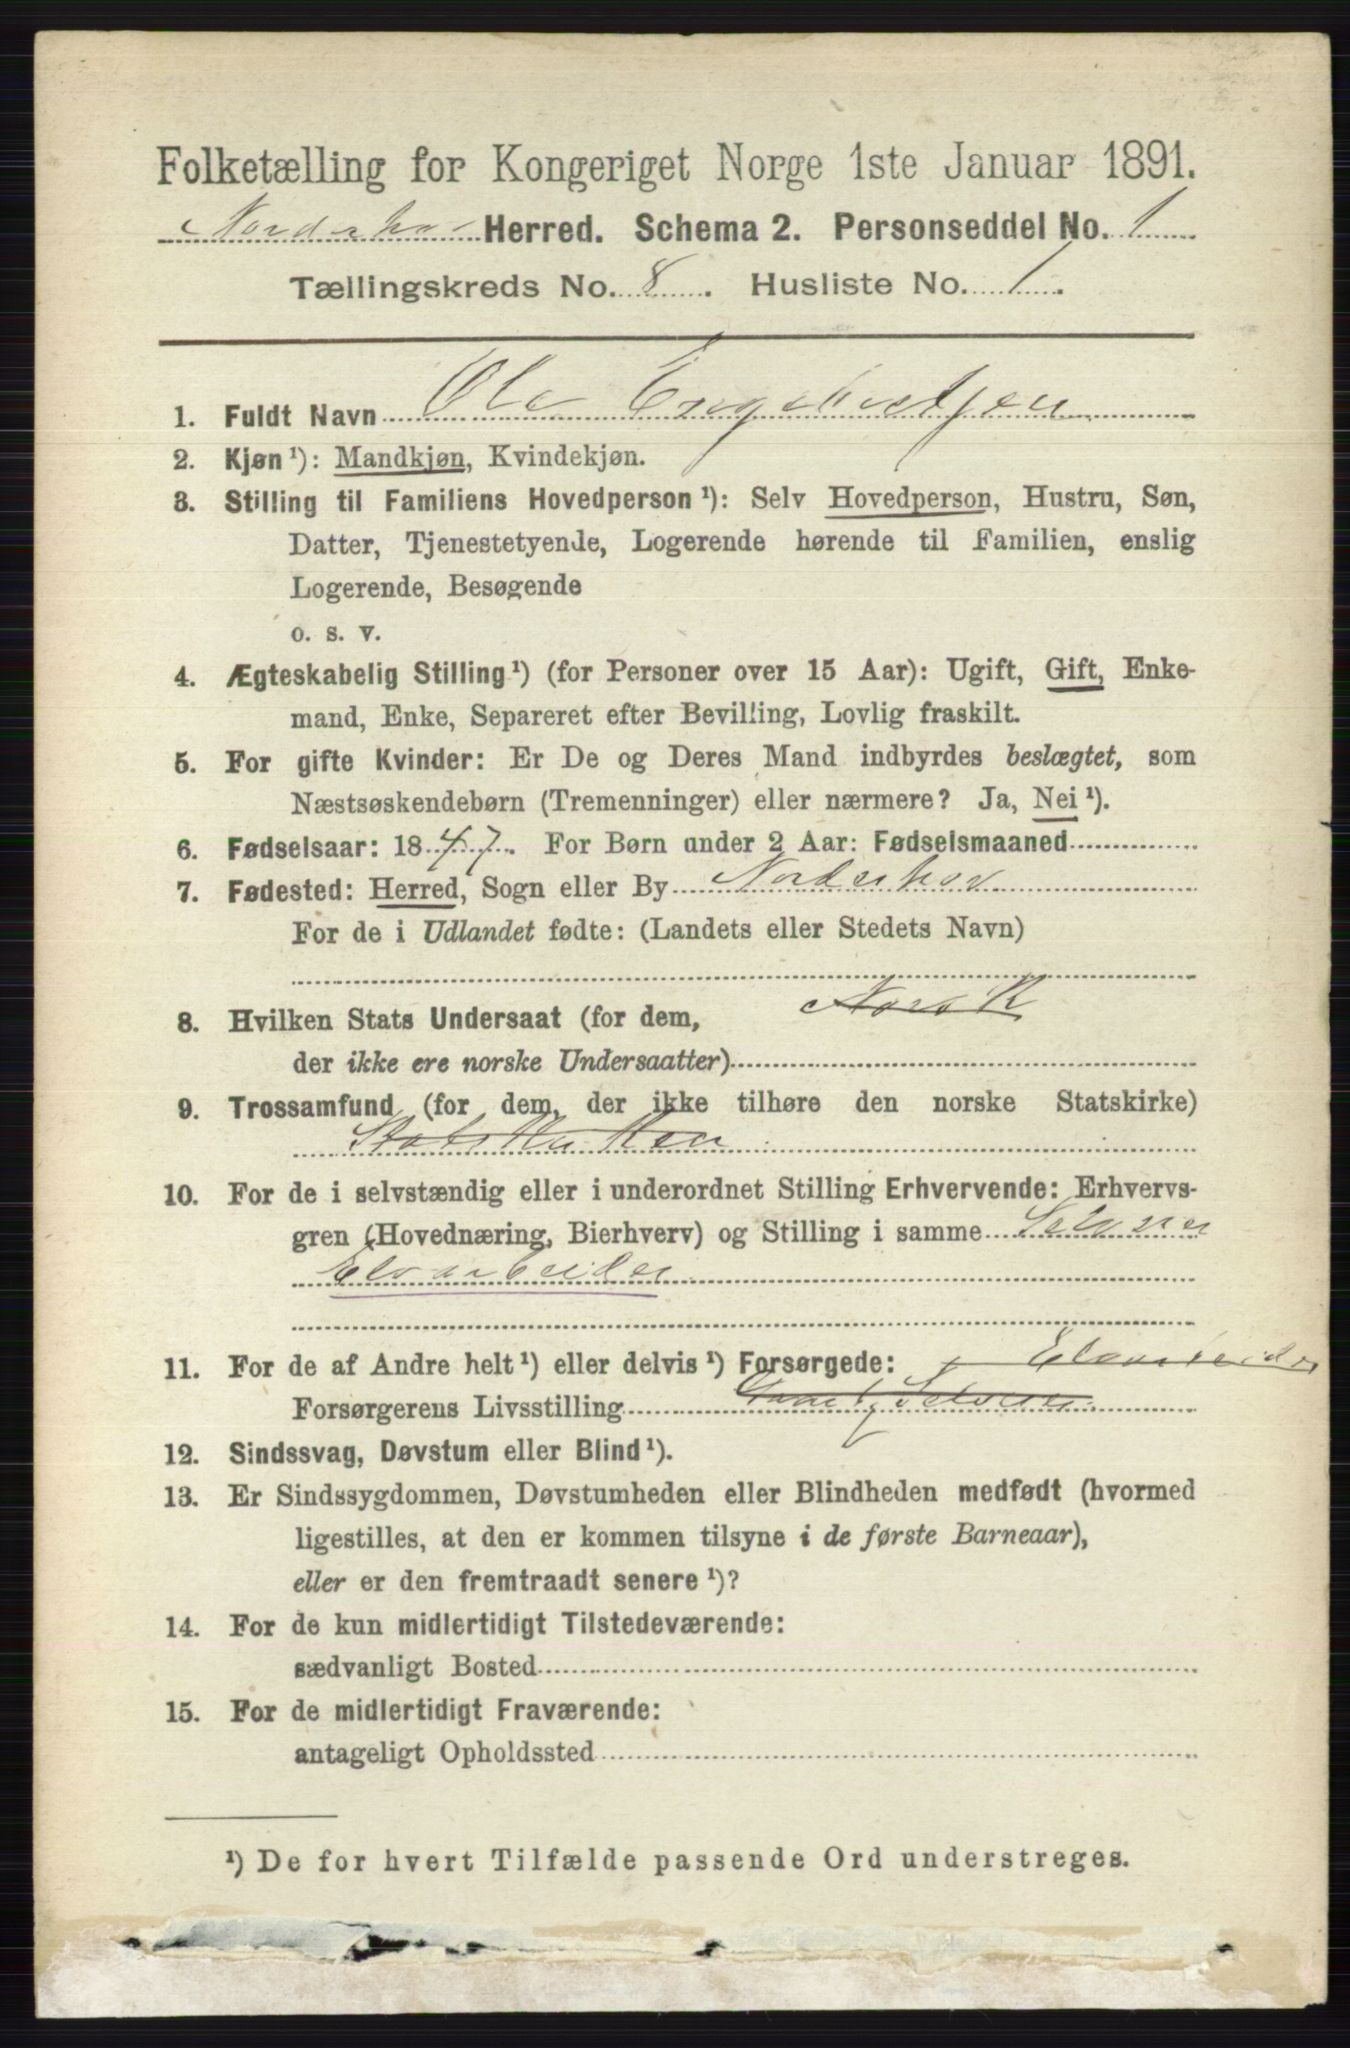 Folketælling for Kongeriget Norge 1ste Januar 1891.
Norderhov Herred. Schema 2. Personseddel No. 1
Tællingskreds No. 8. Husliste No. 1.
1. Fuldt Navn Ole Engebretsen
2. Kjøn¹): Mandkjøn, Kvindekjøn.
3. Stilling til Familiens Hovedperson¹): Selv Hovedperson, Hustru, Søn,
Datter, Tjenestetyende, Logerende hørende til Familien, enslig
Logerende, Besøgende
o. s. v.
4. Ægteskabelig Stilling¹) (for Personer over 15 Aar): Ugift, Gift, Enke-
mand, Enke, Separeret efter Bevilling, Lovlig fraskilt.
5. For gifte Kvinder: Er De og Deres Mand indbyrdes beslægtet, som
Næstsøskendebørn (Tremenninger) eller nærmere? Ja, Nei¹).
6. Fødselsaar: 1847. For Børn under 2 Aar: Fødselsmaaned
7. Fødested: Herred, Sogn eller By Norderhov
For de i Udlandet fødte: (Landets eller Stedets Navn)
Norsk
8. Hvilken Stats Undersaat (for dem,
der ikke ere norske Undersaatter)
9. Trossamfund (for dem, der ikke tilhøre den norske Statskirke)
Statskirken
10. For de i selvstændig eller i underordnet Stilling Erhvervende: Erhvervs-
gren (Hovednæring, Bierhverv) og Stilling i samme Selveier
Elvarbeider
11. For de af Andre helt¹) eller delvis¹) Forsørgede: Elvarbeider
Forsørgerens Livsstilling Selveier
12. Sindssvag, Døvstum eller Blind¹).
13. Er Sindssygdommen, Døvstumheden eller Blindheden medfødt (hvormed
ligestilles, at den er kommen tilsyne i de første Barneaar),
eller er den fremtraadt senere¹)?
14. For de kun midlertidigt Tilstedeværende:
sædvanligt Bosted
15. For de midlertidigt Fraværende:
antageligt Opholdssted
¹) De for hvert Tilfælde passende Ord understreges.